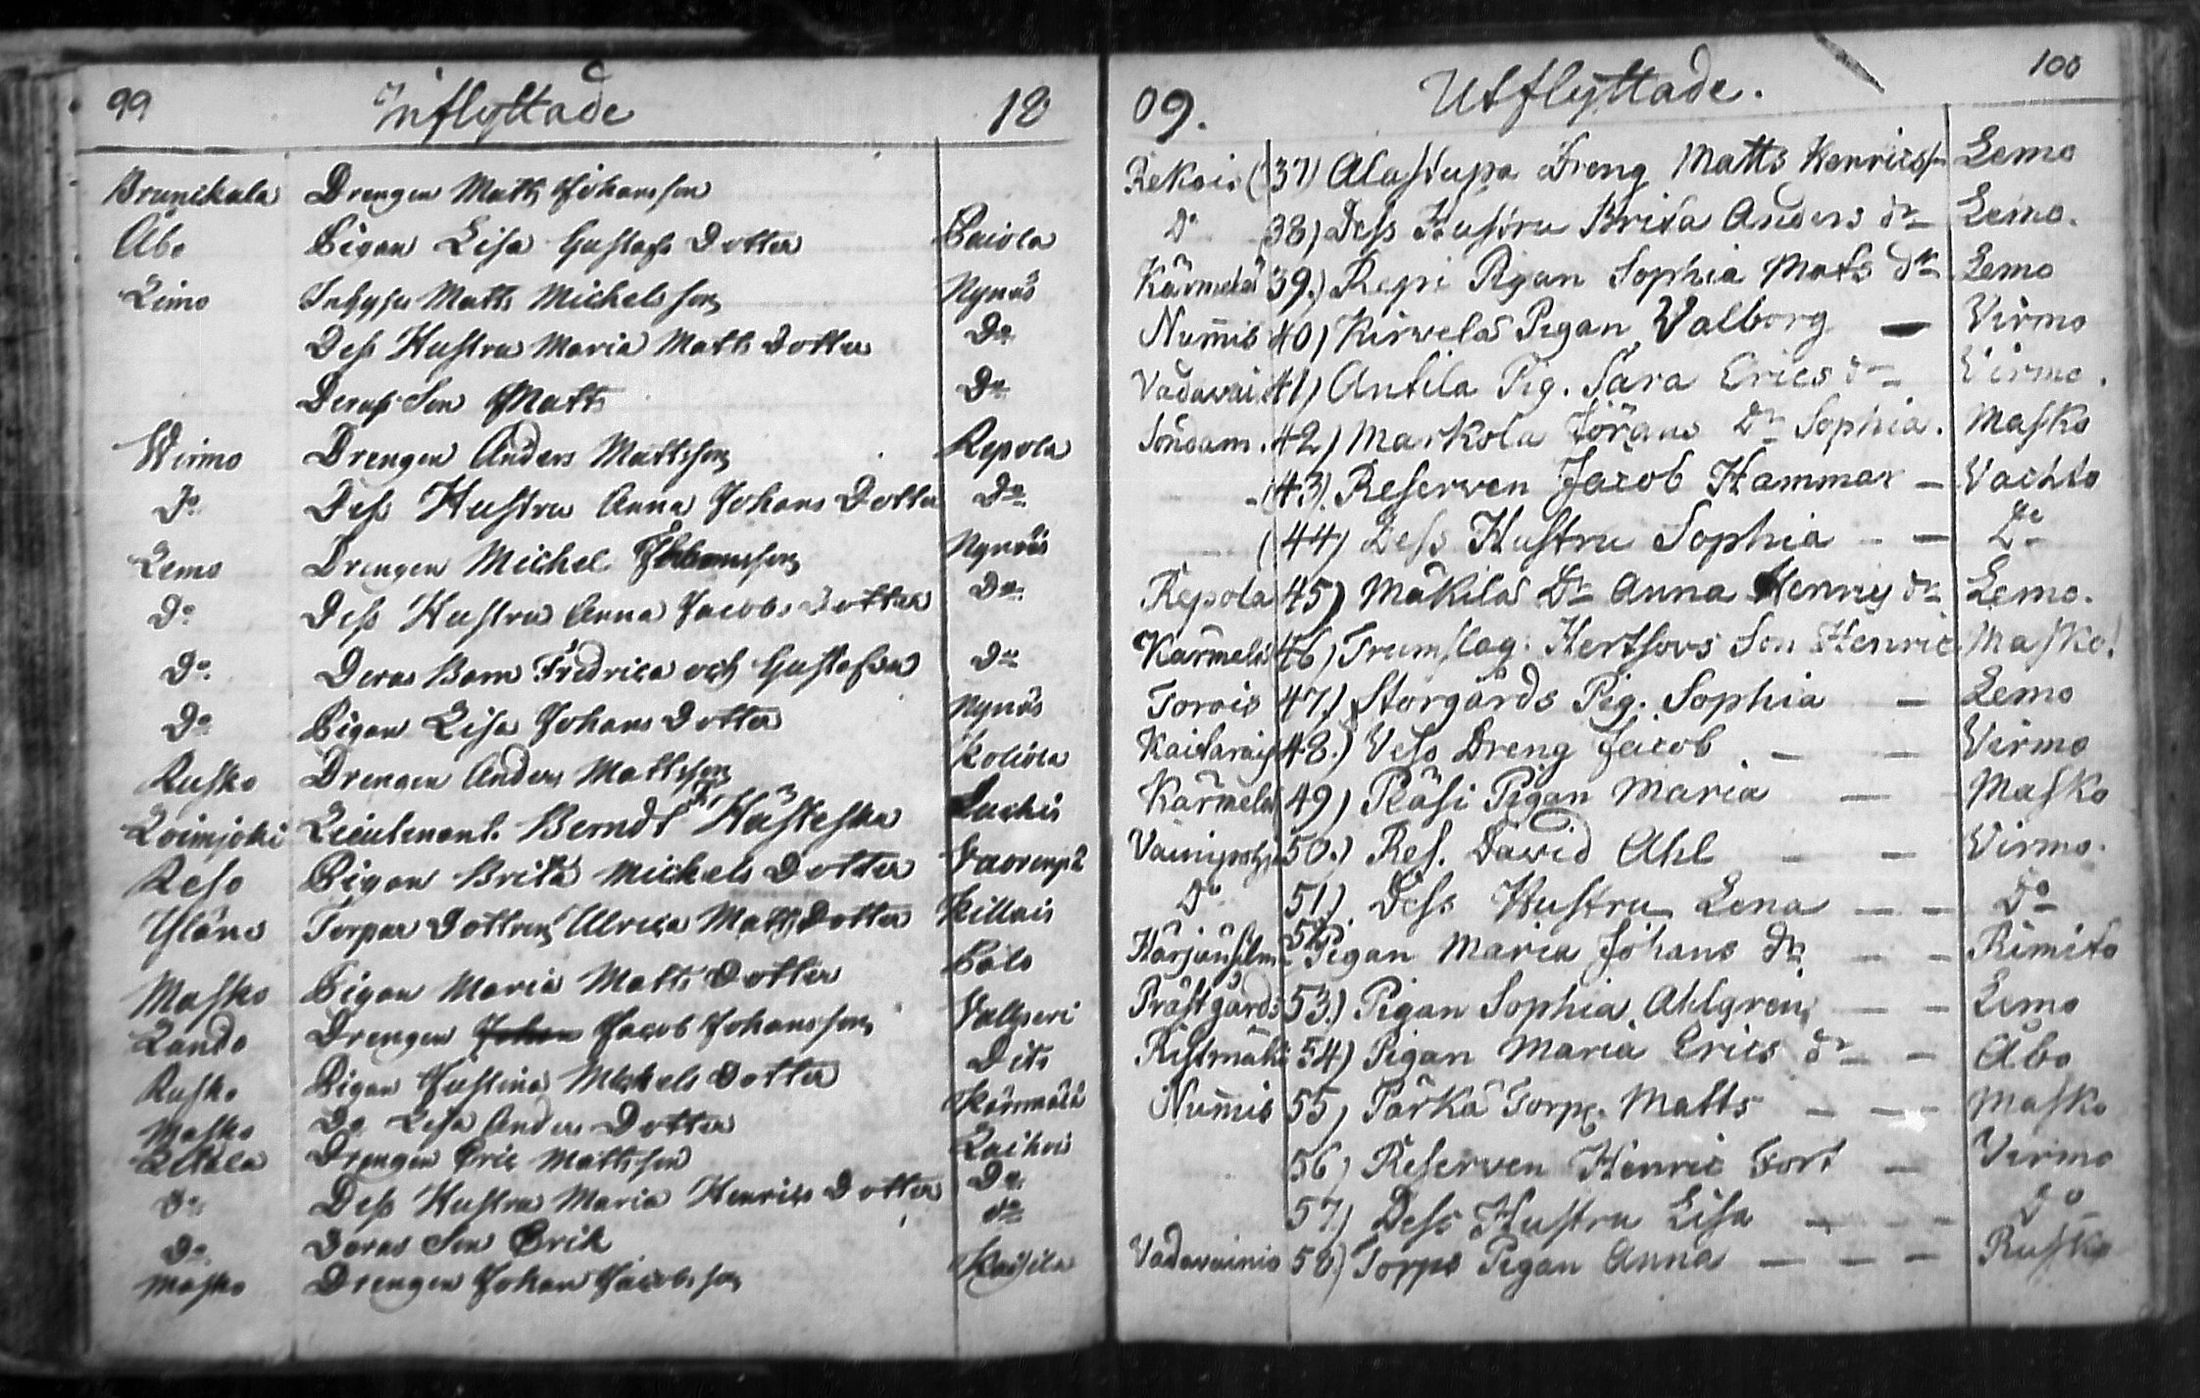 99 Inflyttade 18
Brunikala Drengen Matts Johansson
Åbo Pigan Lisa Gustafs Dotter Paiola
Lemo Inhyses Matts Michelsson Nynäs
Dess Hustru Maria Matts Dotter Do
Deras Son Matts Do
Wirmo Drengen Anders Mattsson Repola
Do Dess Hustru Anna Johans Dotter Do
Lemo Drengen Michel Johansson Nynäs
Do Dess Hustru Anna Jacobs Dotter Do
Do Deras Barn Fredrica och Gustafva Do
Do Pigan Lisa Johans Dotter Nynäs
Rusko Drengen Anders Mattsson Koliola
Loimjoki Lieutenant Berndt Hästesko
Reso Pigan Brita Michels Dotter
Yläne Torpar Dottren Ulrica Matts Dotter Killais
Masko Pigan Maria Matts Dotter Palo
Lundo Drengen Jacob Johansson Vallperi
Rusko Pigan Justina Michels Dotter Dito
Masko Do Lisa Anders Dotter Kärmälä
Drengen Eric Mattsson Laihois
Do Dess Hustru Maria Henrics Dotter Do
Do Deras Son Erik do
Masko Drengen Johan Jacobsson Kaisela
09. Utflyttade. 100
Rekois (37) Alastupa Dreng Matts Henricss Lemo
Do 38) Dess Hustru Brita Anders dr Lemo.
Kärmelä 39.) Repi Pigan Sophia Mats dr Lemo
Num̅is 40) Kirvelä Pigan Valborg — Virmo
Vadavai 41) Antila Pig. Sara Erics dr Virmo.
Söndam. 42) Markola Jörans Dr Sophia. Masko
(43). Reserven Jacob Hammar — Vachto
(44) Dess Hustru Sophia — — Do
Repola 45) Mäkilä Dr Anna Henrics dr Lemo.
Kärmelä 46) Trumslag. Hertsovs Son Henric Masko.
Torois 47.) Storgårds Pig. Sophia — Lemo
Kaitarais 48.) Vess Dreng Jacob — — Virmo
Kärmelä 49) Räsi Pigan Maria — — Masko
50.) Res. David Ahl — — Virmo.
Do 51) Dess Hustru Lena — — Do
Harjunsilm 52) Pigan Maria Johans dr. — — Rimito
Prästgårds 53.) Pigan Sophia Ahlgren — — Lemo
Ristmäki 54) Pigan Maria Erics dr — — Åbo
Num̅is 55) Pärkä Torp. Matts — — — Masko
56) Reserven Henric Fort — Virmo
57) Dess Hustru Lisa — — — Do
Vadavainio 58) Torpe Pigan Anna — — — Rusko